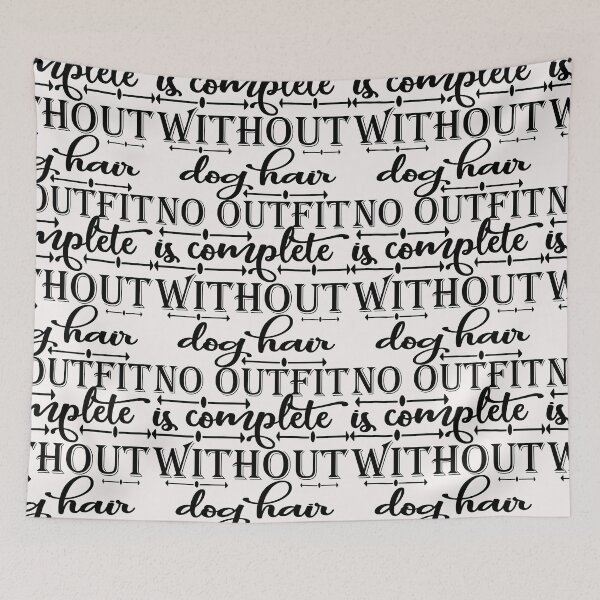 mplete is complete is complete is
THOUT WITHOUT WITHOUT W
og hair dog hair dog hair
OUTFIT NO OUTFIT NO OUTFIT N
mplete is complete is complete is
THOUT WITHOUT WITHOUT W
og hair dog hair dog hair
OUTFIT NO OUTFIT NO OUTFIT N
mplete is complete is complete is
THOUT WITHOUT WITHOUT W
og hair dog hair dog hair